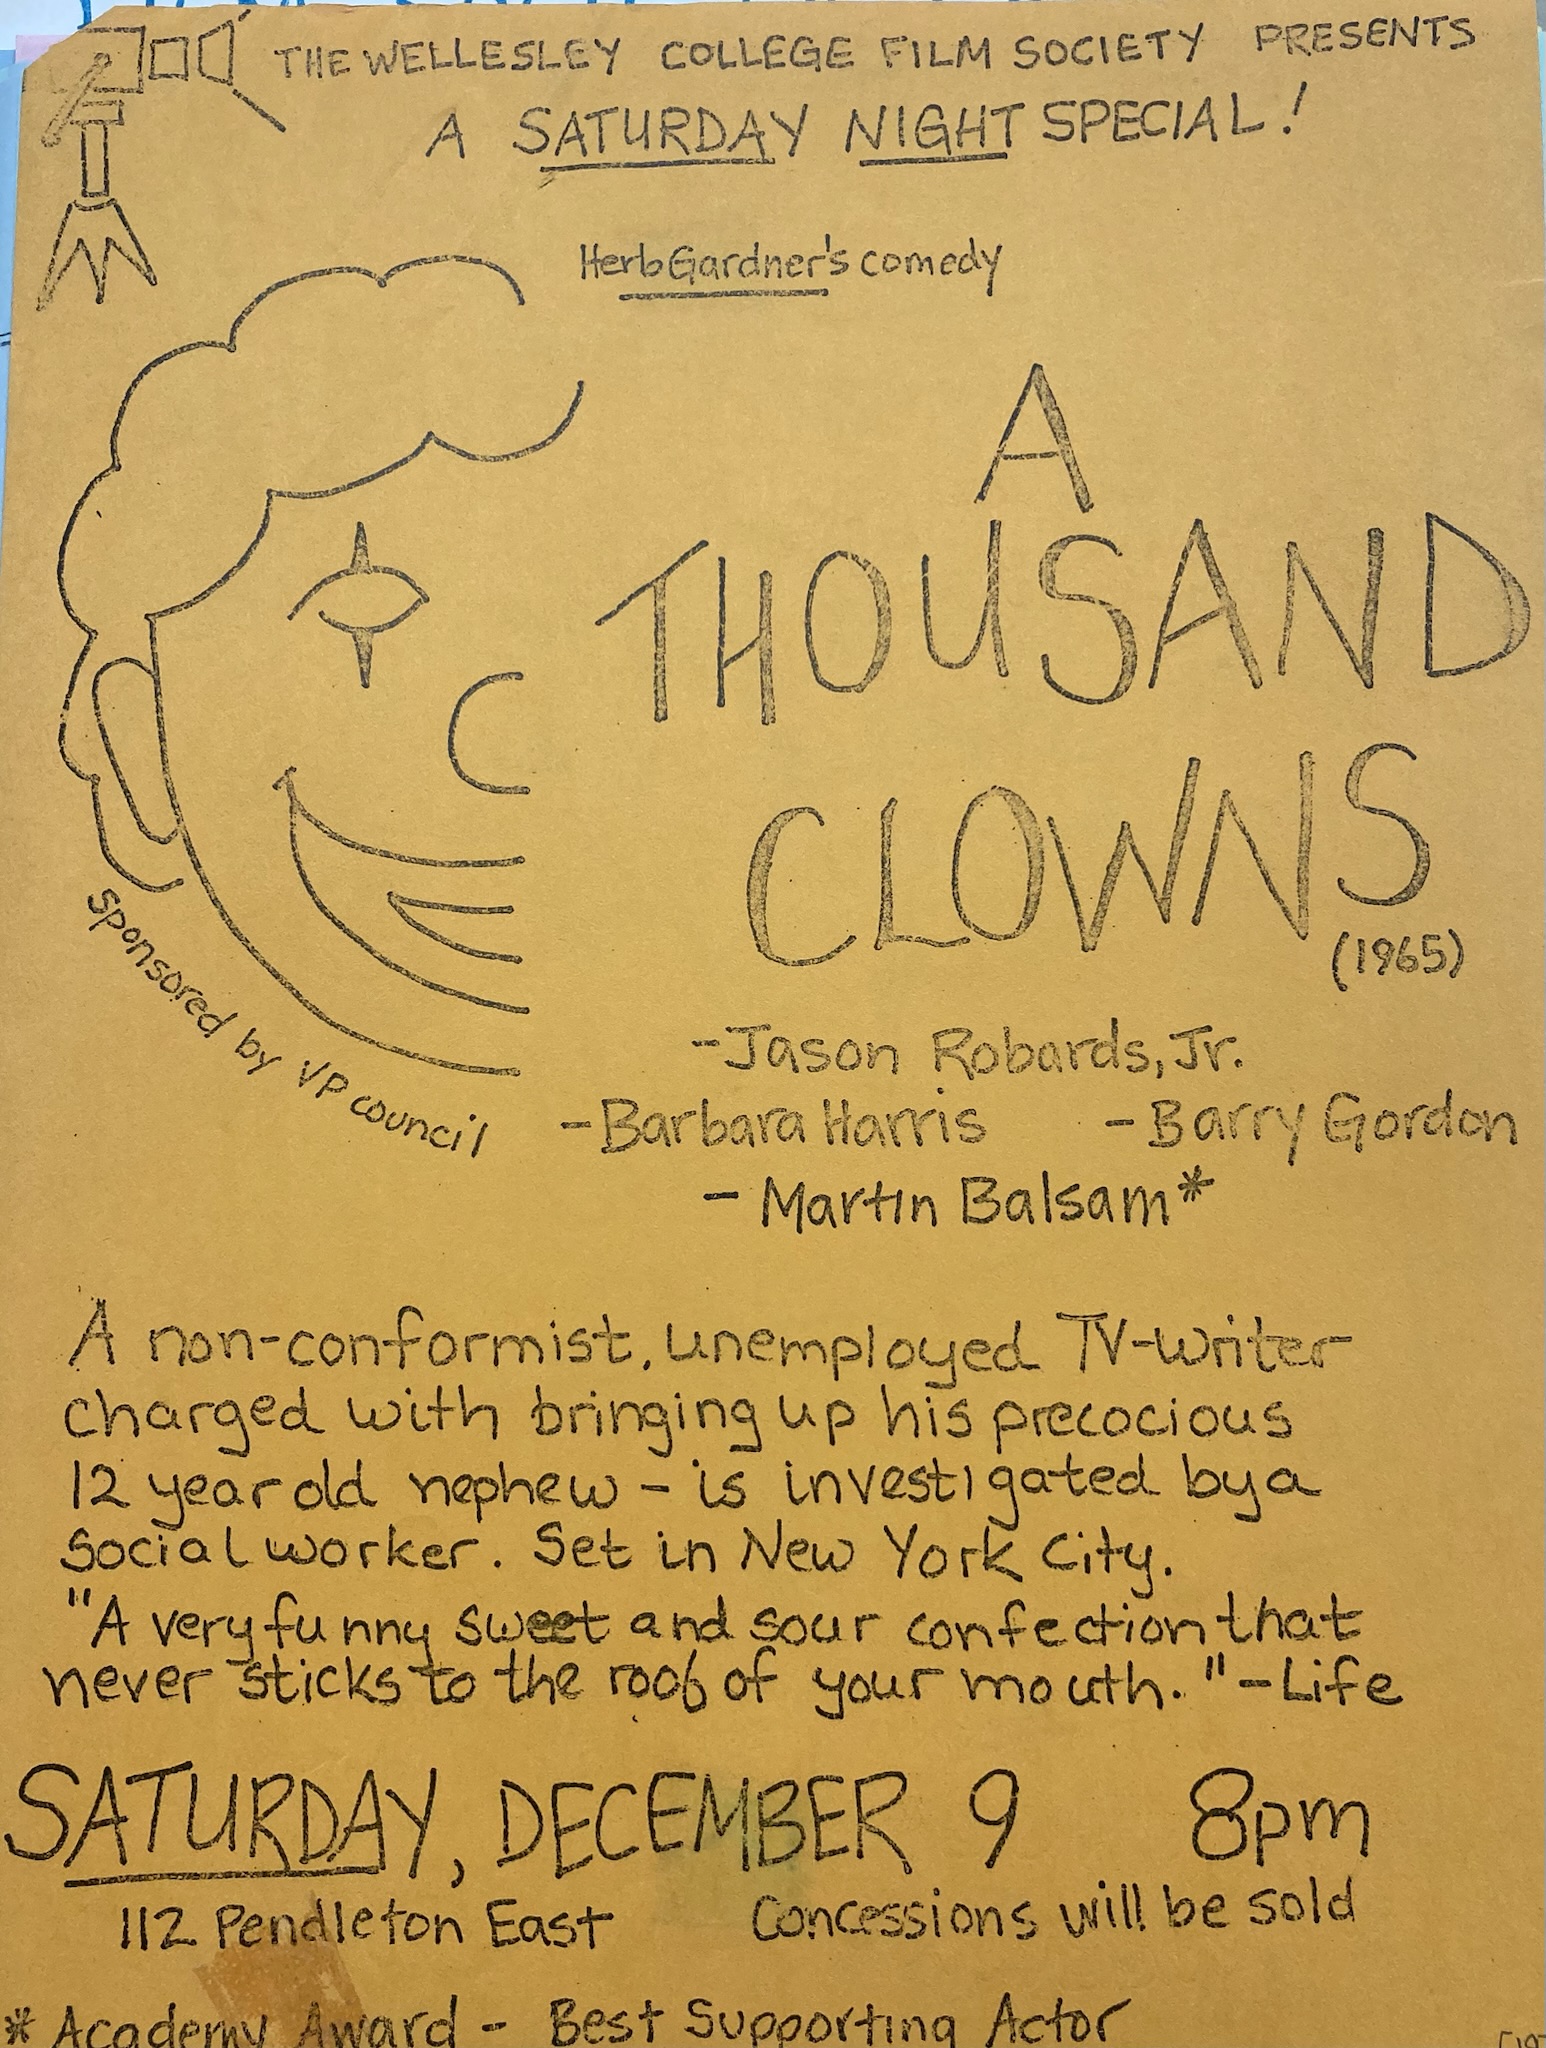 THE WELLESLEY COLLEGE FILM SOCIETY PRESENTS
A SATURDAY NIGHT SPECIAL!
Herb Gardner's comedy
A
THOUSAND
CLOWNS
(1965)
Sponsored by VP council
-Jason Robards, Jr.
-Barbara Harris -Barry Gordon
- Martin Balsam*
A non-conformist, unemployed TV-writer
charged with bringing up his precocious
12 year old nephew - is investigated by a
social worker. Set in New York City.
"A very funny sweet and sour confection that
never sticks to the roof of your mouth." -Life
SATURDAY, DECEMBER 9 8pm
112 Pendleton East Concessions will be sold
* Academy Award - Best Supporting Actor